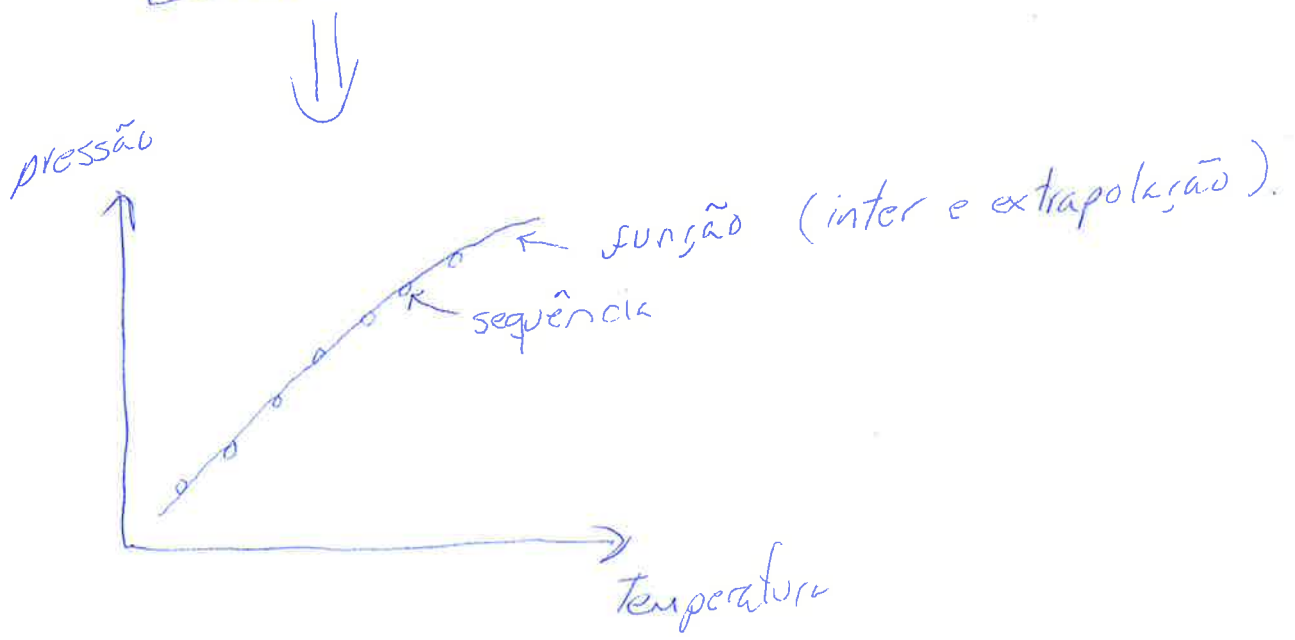 pressão
função (inter e extrapolação).
sequência
Temperatura